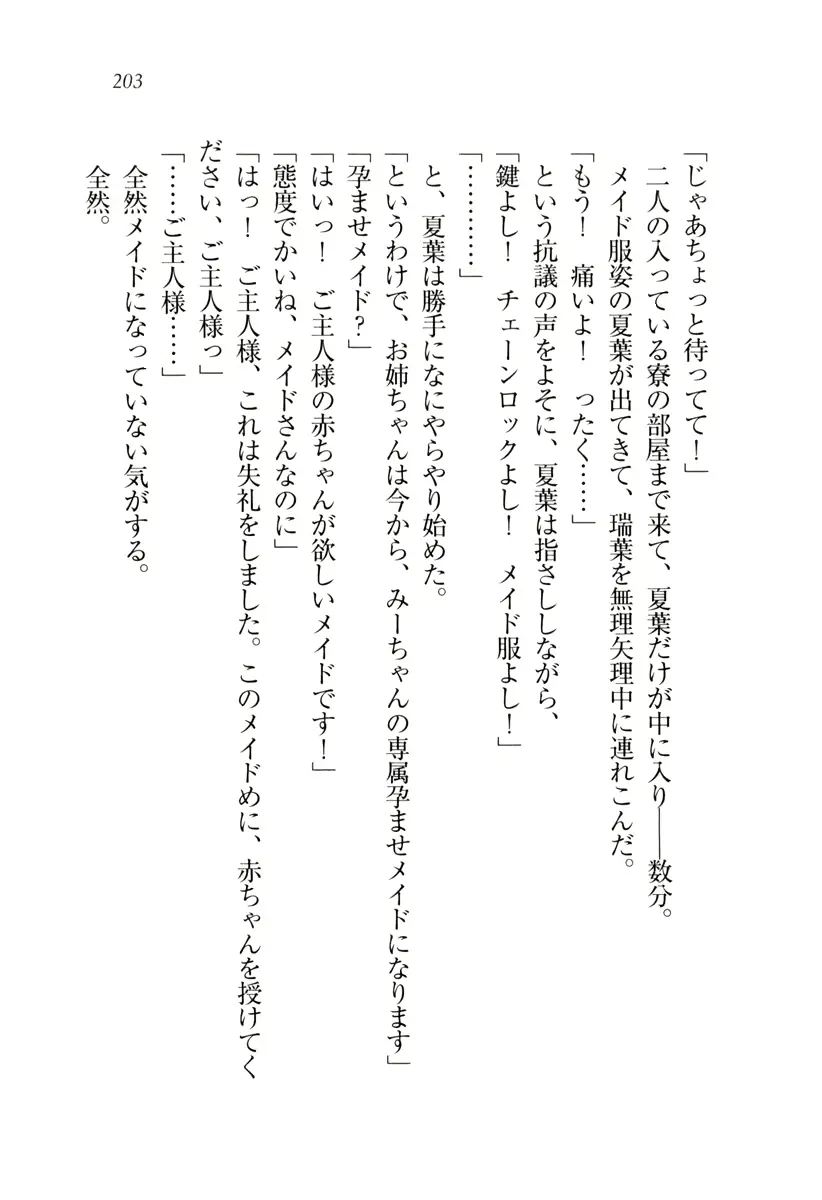 203
「じゃあちょっと待ってて！」
二人の入っている寮の部屋まで来て、夏葉だけが中に入り――数分。
メイド服姿の夏葉が出てきて、瑞葉を無理矢理中に連れこんだ。
「もう！　痛いよ！　ったく……」
という抗議の声をよそに、夏葉は指さししながら、
「鍵よし！　チェーンロックよし！　メイド服よし！」
「…………」
と、夏葉は勝手になにやらやり始めた。
「というわけで、お姉ちゃんは今から、みーちゃんの専属孕ませメイドになります」
「孕ませメイド？」
「はいっ！　ご主人様の赤ちゃんが欲しいメイドです！」
「態度でかいね、メイドさんなのに」
「はっ！　ご主人様、これは失礼をしました。このメイドめに、赤ちゃんを授けてく
ださい、ご主人様っ」
「……ご主人様……」
全然メイドになっていない気がする。
全然。